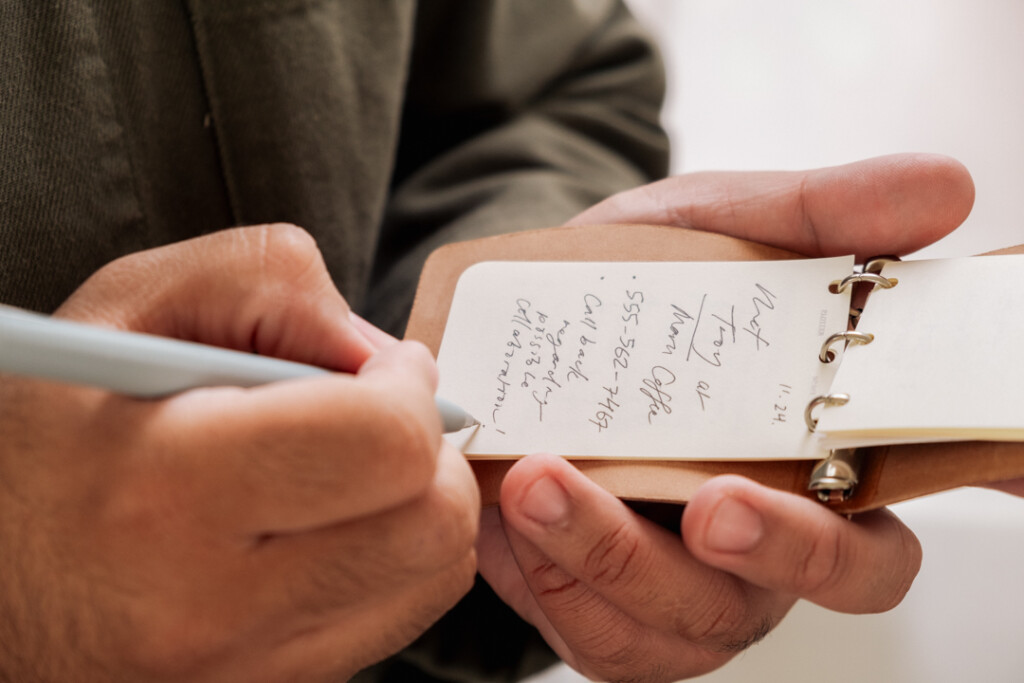 11.24.
Met
Troy at
Mom Coffe
555-562-7467
Call back
regarding
possible
collaboration!